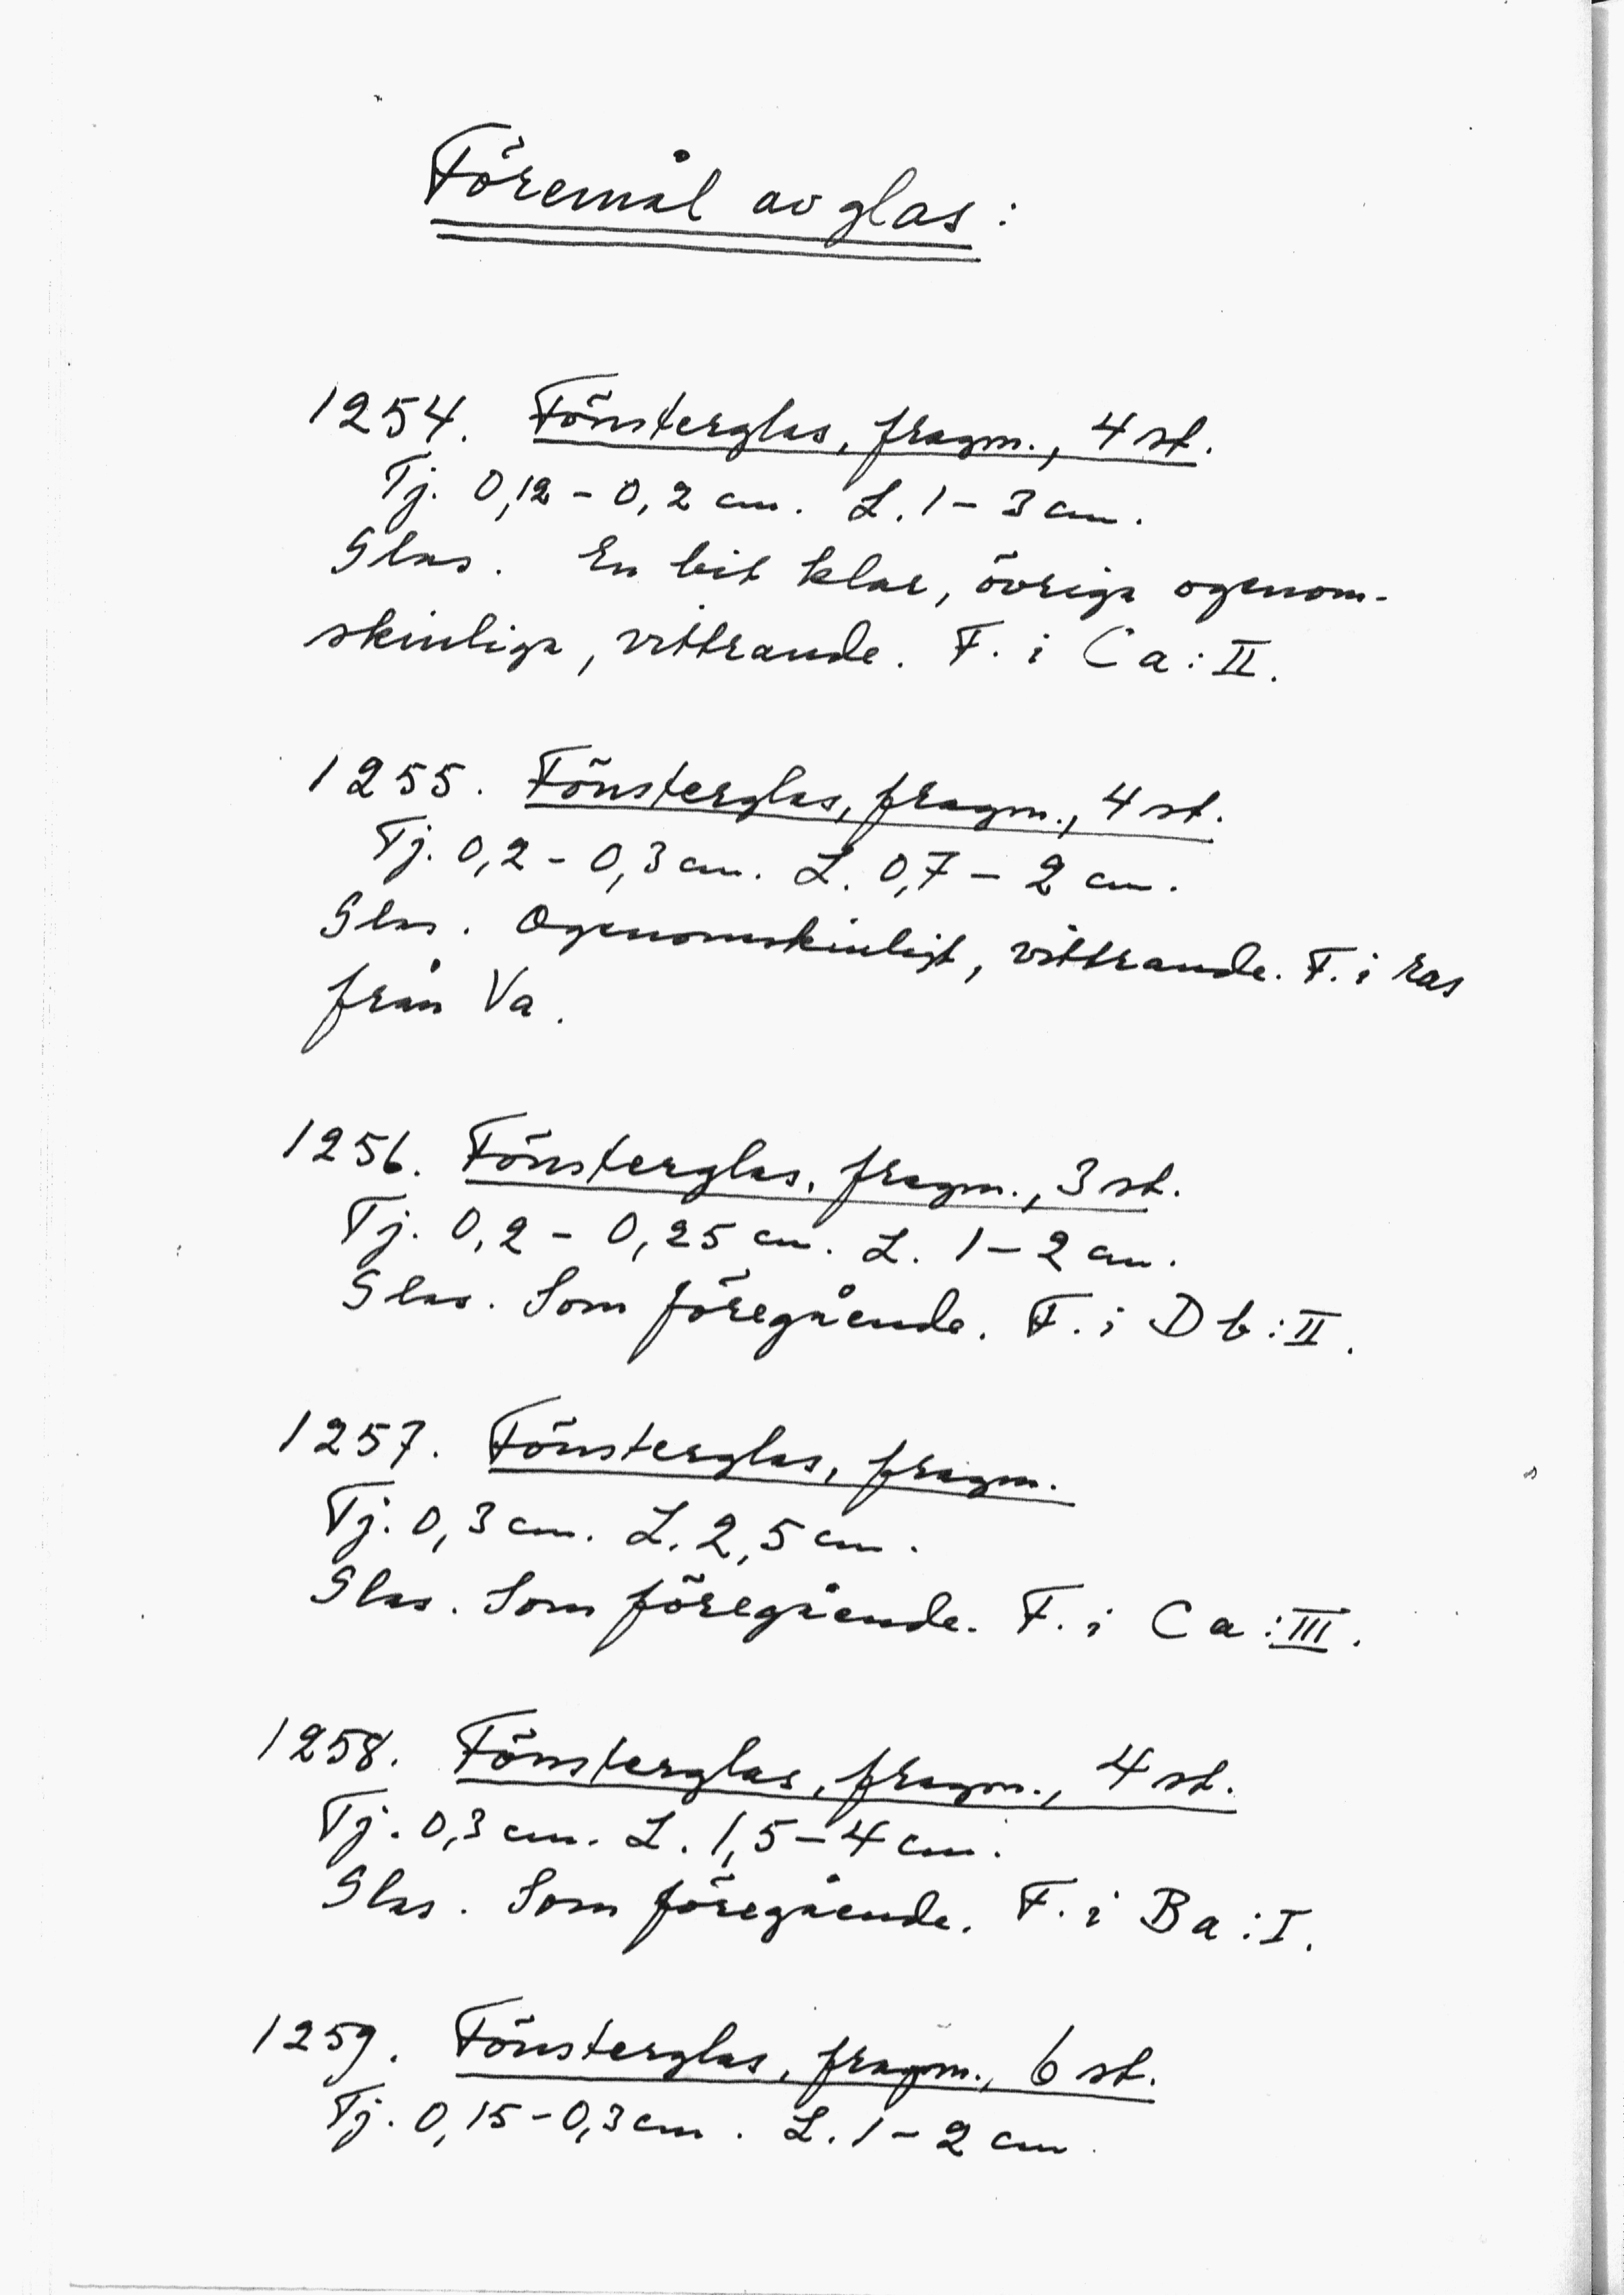 Föremål av glas:
1254. Fönsterglas, fragm., 4 st.
Tj. 0,12 - 0,2 cm. L. 1 - 3 cm.
Glas. En bit klar, övriga ogenom-
skinliga, vittrande. F. i Ca:II.
1255. Fönsterglas, fragm., 4 st.
Tj. 0,2 - 0,3 cm. L. 0,7 - 2 cm.
Glas. Ogenomskinligt, vittrande. F. i ras
från Va.
1256. Fönsterglas, fragm., 3 st.
Tj. 0,2 - 0,25 cm. L. 1 - 2 cm.
Glas. Som föregående. F. i Db:II.
1257. Fönsterglas, fragm.
Tj. 0,3 cm. L. 2,5 cm.
Glas. Som föregående. F. i Ca:III.
1258. Fönsterglas, fragm., 4 st.
Tj. 0,3 cm. L. 1,5 - 4 cm.
Glas. Som föregående. F. i Ba:I.
1259. Fönsterglas, fragm., 6 st.
Tj. 0,15 - 0,3 cm. L. 1 - 2 cm